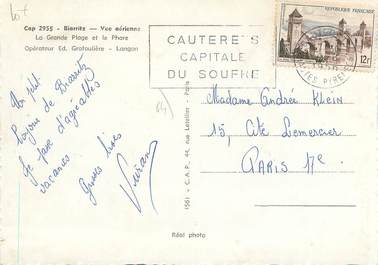 Cap 2955 - Biarritz — Vue aérienne
La Grande Plage et le Phare
Opérateur Ed. Gratoulière - Langon
CAUTERETS
CAPITALE
DU SOUFRE
REPUBLIQUE FRANÇAISE
12F
Un petit
bonjour de Biarritz
Je passe d'agréables
vacances
Grosses bises
1561 - C.A.P., 44, rue Letellier - Paris
Réal photo
Madame Andrée Klein
15, Cité Lemercier
PARIS 17e.